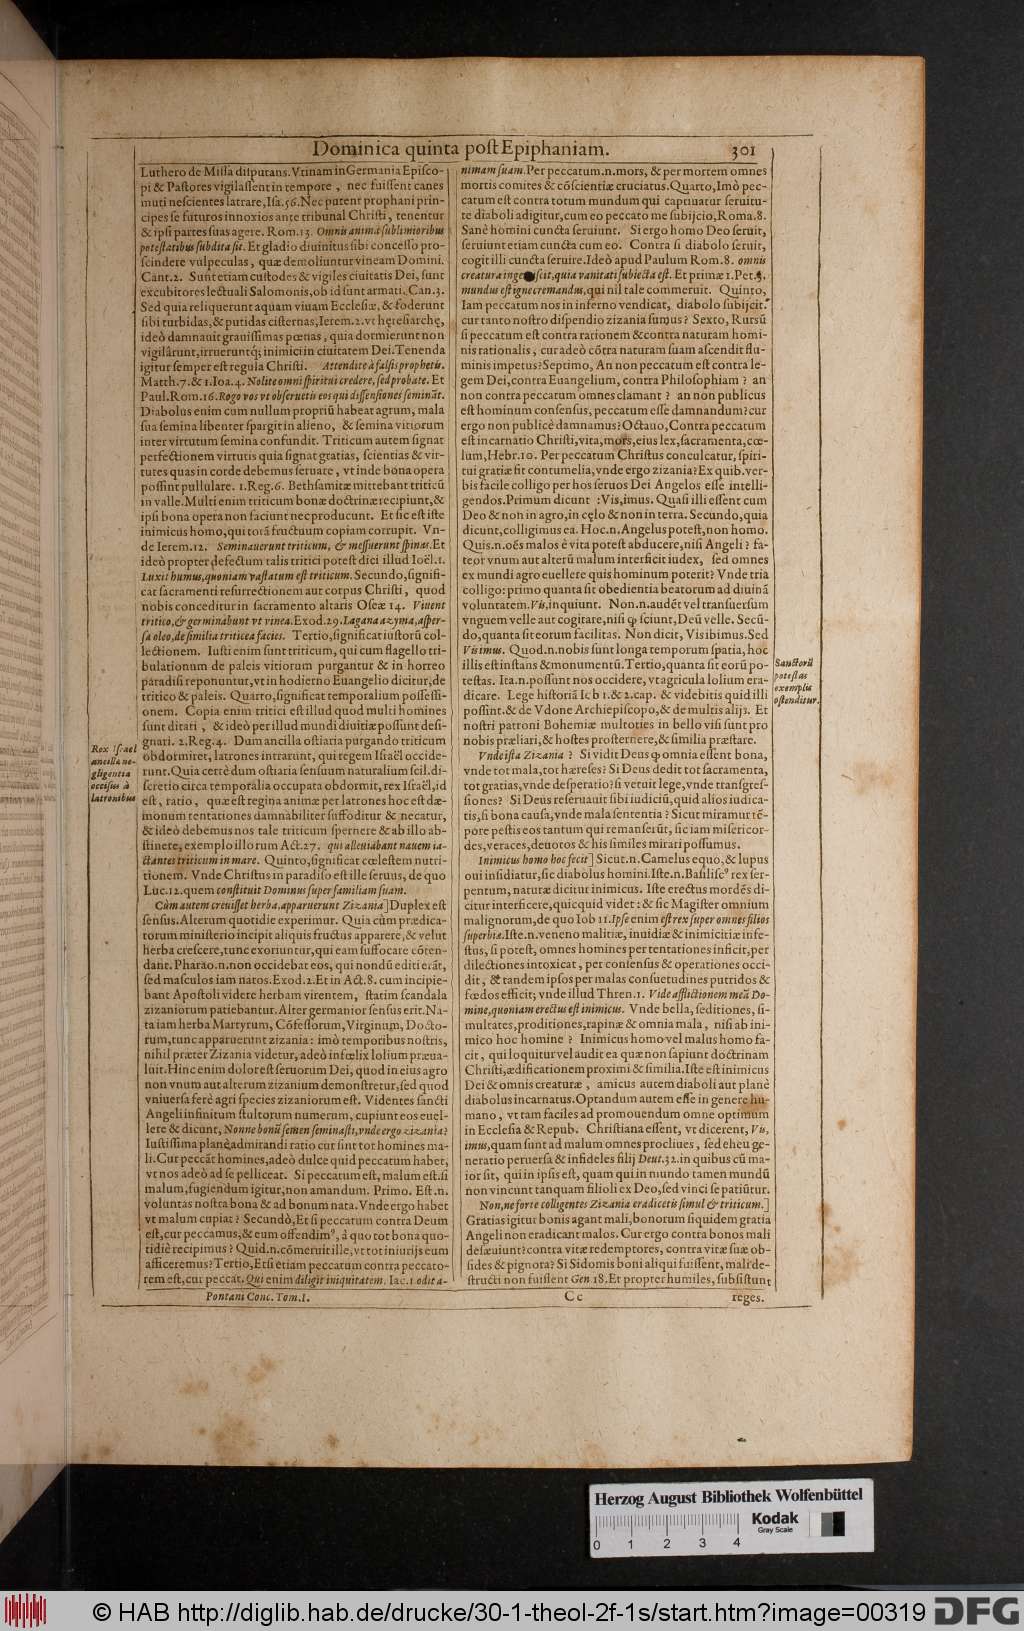 Dominica quinta post Epiphaniam. 301
Luthero de Missa disputans. Vtinam in Germania Episco-
pi & Pastores vigilassent in tempore, nec fuissent canes
muti nescientes latrare, Isa. 56. Nec putent prophani prin-
cipes se futuros innoxios ante tribunal Christi, tenentur
& ipsi partes suas agere. Rom. 13. Omnis anima sublimioribus
potestatibus subdita sit. Et gladio diuinitus sibi concesso pro-
scindere vulpeculas, quæ demoliuntur vineam Domini.
Cant. 2. Sunt etiam custodes & vigiles ciuitatis Dei, sunt
excubitores lectuali Salomonis, ob id sunt armati. Can. 3.
Sed quia reliquerunt aquam viuam Ecclesiæ, & foderunt
sibi turbidas, & putidas cisternas, Ierem. 2. vt hęresiarchę,
ideò damnauit grauissimas pœnas, quia dormierunt non
vigilârunt, irruerũntq́; inimici in ciuitatem Dei. Tenenda
igitur semper est regula Christi. Attendite à falsis prophetis.
Matth. 7. & 1. Ioa. 4. Nolite omni spiritui credere, sed probate. Et
Paul. Rom. 16. Rogo vos vt obseruetis eos qui dissensiones seminãt.
Diabolus enim cum nullum propriũ habeat agrum, mala
sua semina libenter spargit in alieno, & semina vitiorum
inter virtutum semina confundit. Triticum autem signat
perfectionem virtutis quia signat gratias, scientias & vir-
tutes quas in corde debemus seruare, vt inde bona opera
possint pullulare. 1. Reg. 6. Bethsamitæ mittebant triticũ
in valle. Multi enim triticum bonæ doctrinæ recipiunt, &
ipsi bona opera non faciunt nec producunt. Et sic est iste
inimicus homo, qui totã fructuum copiam corrupit. Vn-
de Ierem. 12. Seminauerunt triticum, & messuerunt spinas. Et
ideò propter defectum talis tritici potest dici illud Ioël. 1.
Luxit humus, quoniam vastatum est triticum. Secundo, signifi-
cat sacramenti resurrectionem aut corpus Christi, quod
nobis conceditur in sacramento altaris Oseæ 14. Viuent
tritico, & germinabunt vt vinea. Exod. 29. Lagana azyma, asper-
sa oleo, de similia triticea facies. Tertio, significat iustorũ col-
lectionem. Iusti enim sunt triticum, qui cum flagello tri-
bulationum de paleis vitiorum purgantur & in horreo
paradisi reponuntur, vt in hodierno Euangelio dicitur, de
tritico & paleis. Quarto, significat temporalium possessi-
onem. Copia enim tritici est illud quod multi homines
sunt ditati, & ideò per illud mundi diuitiæ possunt desi-
gnari. 2. Reg. 4. Dum ancilla ostiaria purgando triticum
obdormiret, latrones intrarunt, qui regem Israël occide-
runt. Quia certè dum ostiaria sensuum naturalium scil. di-
scretio circa temporalia occupata obdormit, rex Israël, id
est, ratio, quæ est regina animæ per latrones hoc est dæ-
monum tentationes damnabiliter suffoditur & necatur,
& ideò debemus nos tale triticum spernere & ab illo ab-
stinere, exemplo illorum Act. 27. qui alleuiabant nauem ia-
ctantes triticum in mare. Quinto, significat cœlestem nutri-
tionem. Vnde Christus in paradiso est ille seruus, de quo
Luc. 12. quem constituit Dominus super familiam suam.
Cùm autem creuisset herba, apparuerunt Zizania] Duplex est
sensus. Alterum quotidie experimur. Quia cùm prædica-
torum ministerio incipit aliquis fructus apparere, & velut
herba crescere, tunc exoriuntur, qui eam suffocare cõten-
dant. Pharao. n. non occidebat eos, qui nondũ editi erãt,
sed masculos iam natos. Exod. 1. Et in Act. 8. cum incipie-
bant Apostoli videre herbam virentem, statim scandala
zizaniorum patiebantur. Alter germanior sensus erit. Na-
ta iam herba Martyrum, Cõfessorum, Virginum, Docto-
rum, tunc apparuerunt zizania: imò temporibus nostris,
nihil præter Zizania videtur, adeò infœlix lolium præua-
luit. Hinc enim dolor est seruorum Dei, quod in eius agro
non vnum aut alterum zizanium demonstretur, sed quod
vniuersa ferè agri species zizaniorum est. Videntes sancti
Angeli infinitum stultorum numerum, cupiunt eos euel-
lere & dicunt, Nonne bonũ semen seminasti, vnde ergo zizania?
Iustissima planè, admirandi ratio cur sint tot homines ma-
li. Cur peccãt homines, adeò dulce quid peccatum habet,
vt nos adeò ad se pelliceat. Si peccatum est, malum est. si
malum, fugiendum igitur, non amandum. Primo. Est. n.
voluntas nostra bona & ad bonum nata. Vnde ergo habet
vt malum cupiat? Secundò, Et si peccatum contra Deum
est, cur peccamus, & eum offendimꝰ, à quo tot bona quo-
tidiè recipimus? Quid. n. cõmeruit ille, vt tot iniurijs eum
afficeremus? Tertio, Etsi etiam peccatum contra peccato-
rem est, cur peccat. Qui enim diligit iniquitatem. Iac. 1 odit a-
Rex Israel
ancilla ne-
gligentia
occisus à
latronibus
nimam suam. Per peccatum. n. mors, & per mortem omnes
mortis comites & cõscientiæ cruciatus. Quarto, Imò pec-
catum est contra totum mundum qui captiuatur seruitu-
te diaboli adigitur, cum eo peccato me subijcio, Roma. 8.
Sanè homini cuncta seruiunt. Si ergo homo Deo seruit,
seruiunt etiam cuncta cum eo. Contra si diabolo seruit,
cogit illi cuncta seruire. Ideò apud Paulum Rom. 8. omnis
creatura ingemiscit, quia vanitati subiecta est. Et primæ 1. Pet. 3.
mundus est igne cremandus, qui nil tale commeruit. Quinto,
Iam peccatum nos in inferno vendicat, diabolo subijcit:
cur tanto nostro dispendio zizania sumus? Sexto, Rursũ
si peccatum est contra rationem & contra naturam homi-
nis rationalis, cur adeò cõtra naturam suam ascendit flu-
minis impetus? Septimo, An non peccatum est contra le-
gem Dei, contra Euangelium, contra Philosophiam? an
non contra peccatum omnes clamant? an non publicus
est hominum consensus, peccatum esse damnandum? cur
ergo non publicè damnamus? Octauo, Contra peccatum
est incarnatio Christi, vita, mors, eius lex, sacramenta, cœ-
lum, Hebr. 10. Per peccatum Christus conculcatur, spiri-
tui gratiæ fit contumelia, vnde ergo zizania? Ex quib. ver-
bis facile colligo per hos seruos Dei Angelos esse intelli-
gendos. Primum dicunt: Vis, imus. Quasi illi essent cum
Deo & non in agro, in cęlo & non in terra. Secundo, quia
dicunt, colligimus ea. Hoc. n. Angelus potest, non homo.
Quis. n. oẽs malos è vita potest abducere, nisi Angeli? fa-
teor vnum aut alterũ malum interficit iudex, sed omnes
ex mundi agro euellere quis hominum poterit? Vnde tria
colligo: primo quanta sit obedientia beatorum ad diuinã
voluntatem. Vis, inquiunt. Non. n. audẽt vel transuersum
vnguem velle aut cogitare, nisi ꝙ sciunt, Deũ velle. Secũ-
do, quanta sit eorum facilitas. Non dicit, Vis ibimus. Sed
Vis imus. Quod. n. nobis sunt longa temporum spatia, hoc
illis est instans & monumentũ. Tertio, quanta sit eorũ po-
testas. Ita. n. possunt nos occidere, vt agricula lolium era-
dicare. Lege historiã Iob 1. & 2. cap. & videbitis quid illi
possint. & de Vdone Archiepiscopo, & de multis alijs. Et
nostri patroni Bohemiæ multoties in bello visi sunt pro
nobis præliari, & hostes prosternere, & similia præstare.
Vnde ista Zizania? Si vidit Deus ꝙ omnia essent bona,
vnde tot mala, tot hæreses? Si Deus dedit tot sacramenta,
tot gratias, vnde desperatio? si vetuit lege, vnde transgres-
siones? Si Deus reseruauit sibi iudiciũ, quid alios iudica-
tis, si bona causa, vnde mala sententia? Sicut miramur tẽ-
pore pestis eos tantum qui remanserũt, sic iam misericor-
des, veraces, deuotos & his similes mirari possumus.
Inimicus homo hoc fecit] Sicut. n. Camelus equo, & lupus
oui insidiatur, sic diabolus homini. Iste. n. Basiliscꝰ rex ser-
pentum, naturæ dicitur inimicus. Iste erectus mordẽs di-
citur interficere, quicquid videt: & sic Magister omnium
malignorum, de quo Iob 11. Ipse enim est rex super omnes filios
superbiæ. Iste. n. veneno malitiæ, inuidiæ & inimicitiæ infe-
stus, si potest, omnes homines per tentationes inficit, per
dilectiones intoxicat, per consensus & operationes occi-
dit, & tandem ipsos per malas consuetudines putridos &
fœdos efficit; vnde illud Thren. 1. Vide afflictionem meã Do-
mine, quoniam erectus est inimicus. Vnde bella, seditiones, si-
multates, proditiones, rapinæ & omnia mala, nisi ab ini-
mico hoc homine? Inimicus homo vel malus homo fa-
cit, qui loquitur vel audit ea quæ non sapiunt doctrinam
Christi, ædificationem proximi & similia. Iste est inimicus
Dei & omnis creaturæ, amicus autem diaboli aut planè
diabolus incarnatus. Optandum autem esse in genere hu-
mano, vt tam faciles ad promouendum omne optimum
in Ecclesia & Repub. Christiana essent, vt dicerent, Vis,
imus, quam sunt ad malum omnes procliues, sed eheu ge-
neratio peruersa & infideles filij Deut. 32. in quibus cũ ma-
ior sit, qui in ipsis est, quam qui in mundo tamen mundũ
non vincunt tanquam filioli ex Deo, sed vinci se patiũtur.
Non, ne forte colligentes Zizania eradicetis simul & triticum.]
Gratias igitur bonis agant mali, bonorum siquidem gratia
Angeli non eradicant malos. Cur ergo contra bonos mali
desæuiunt? contra vitæ redemptores, contra vitæ suæ ob-
sides & pignora? Si Sidomis boni aliqui fuissent, mali de-
structi non fuissent Gen 18. Et propter humiles, subsistunt
Sanctorũ
potestas
exemplis
ostenditur.
Pontani Conc. Tom. I. Cc reges.
Herzog August Bibliothek Wolfenbüttel
Kodak
Gray Scale
0 1 2 3 4
© HAB http://diglib.hab.de/drucke/30-1-theol-2f-1s/start.htm?image=00319 DFG